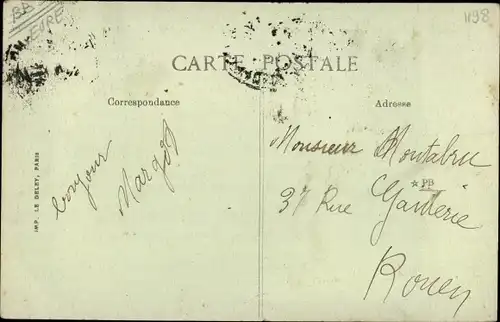 BB
EURE
1198
CARTE POSTALE
Correspondance
Adresse
bonjour
Margot
Monsieur Montabru
37 Rue Ganterie
Rouen
PB
IMP. LE DELEY, PARIS